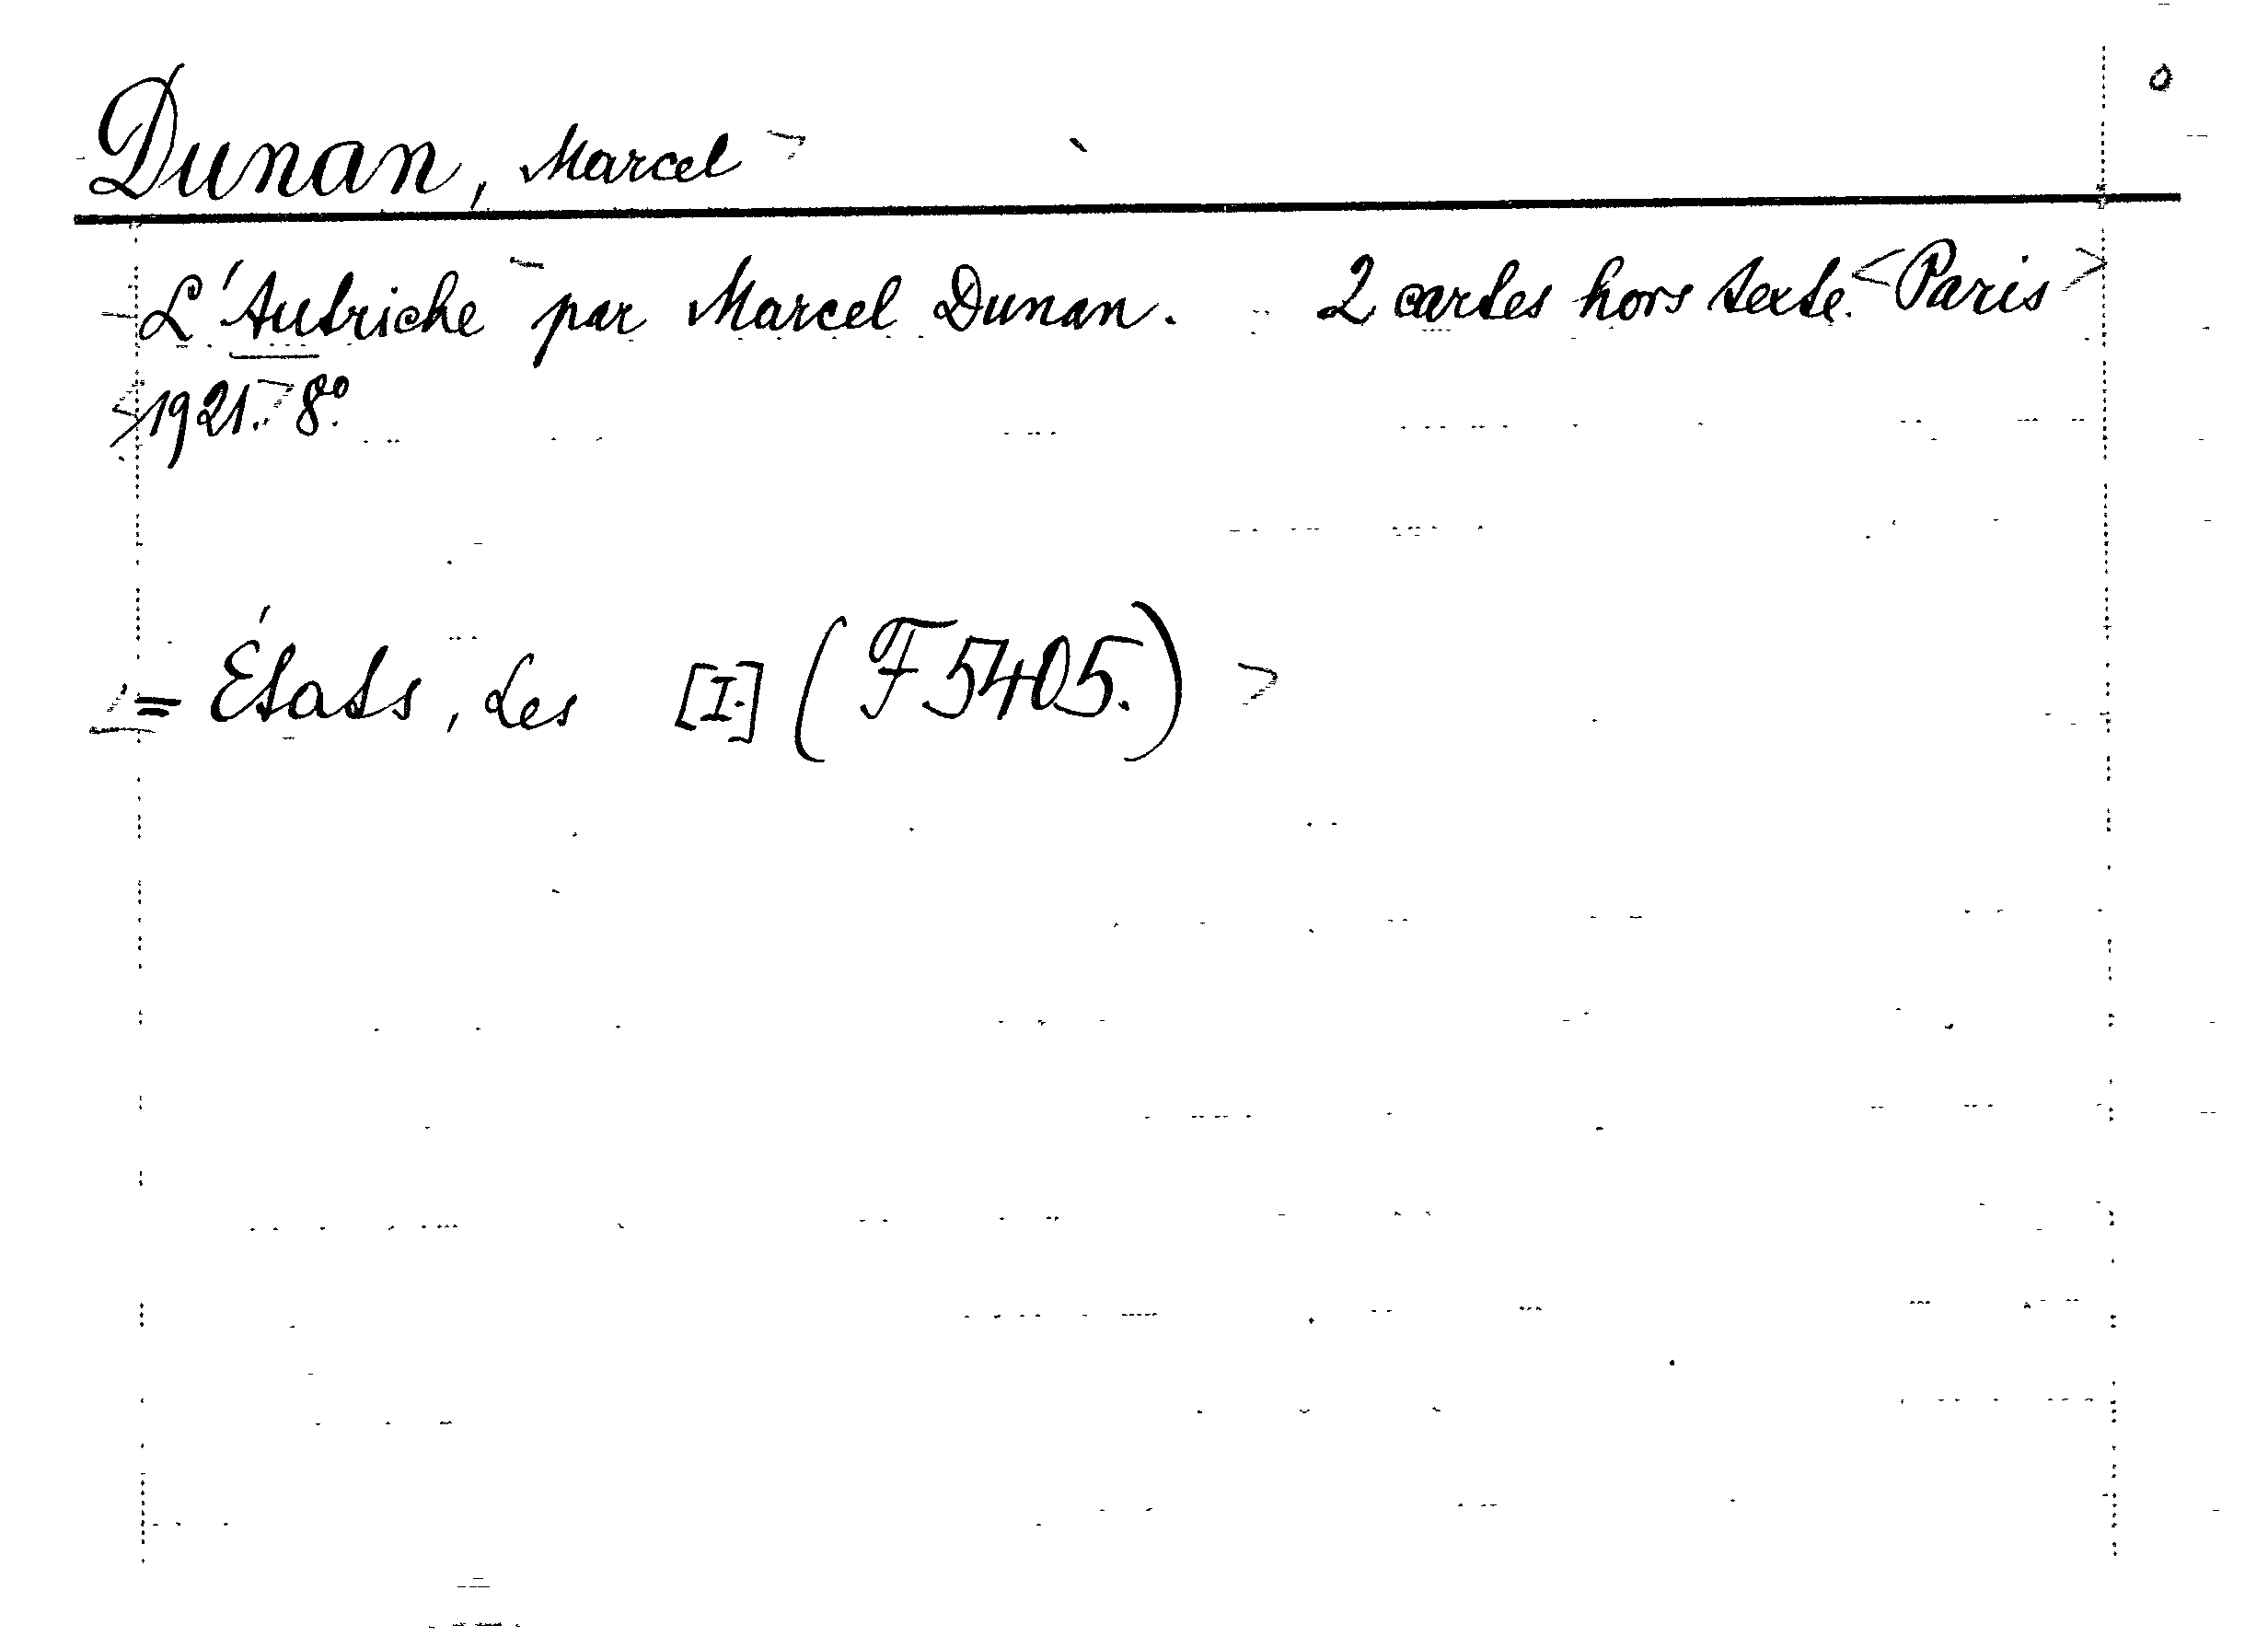 Dunan, Marcel
L'Autriche par Marcel Dunan. 2 cartes hors texte. <Paris>
<1921.> 8°.
= États, Les [I.] (F 5405.)